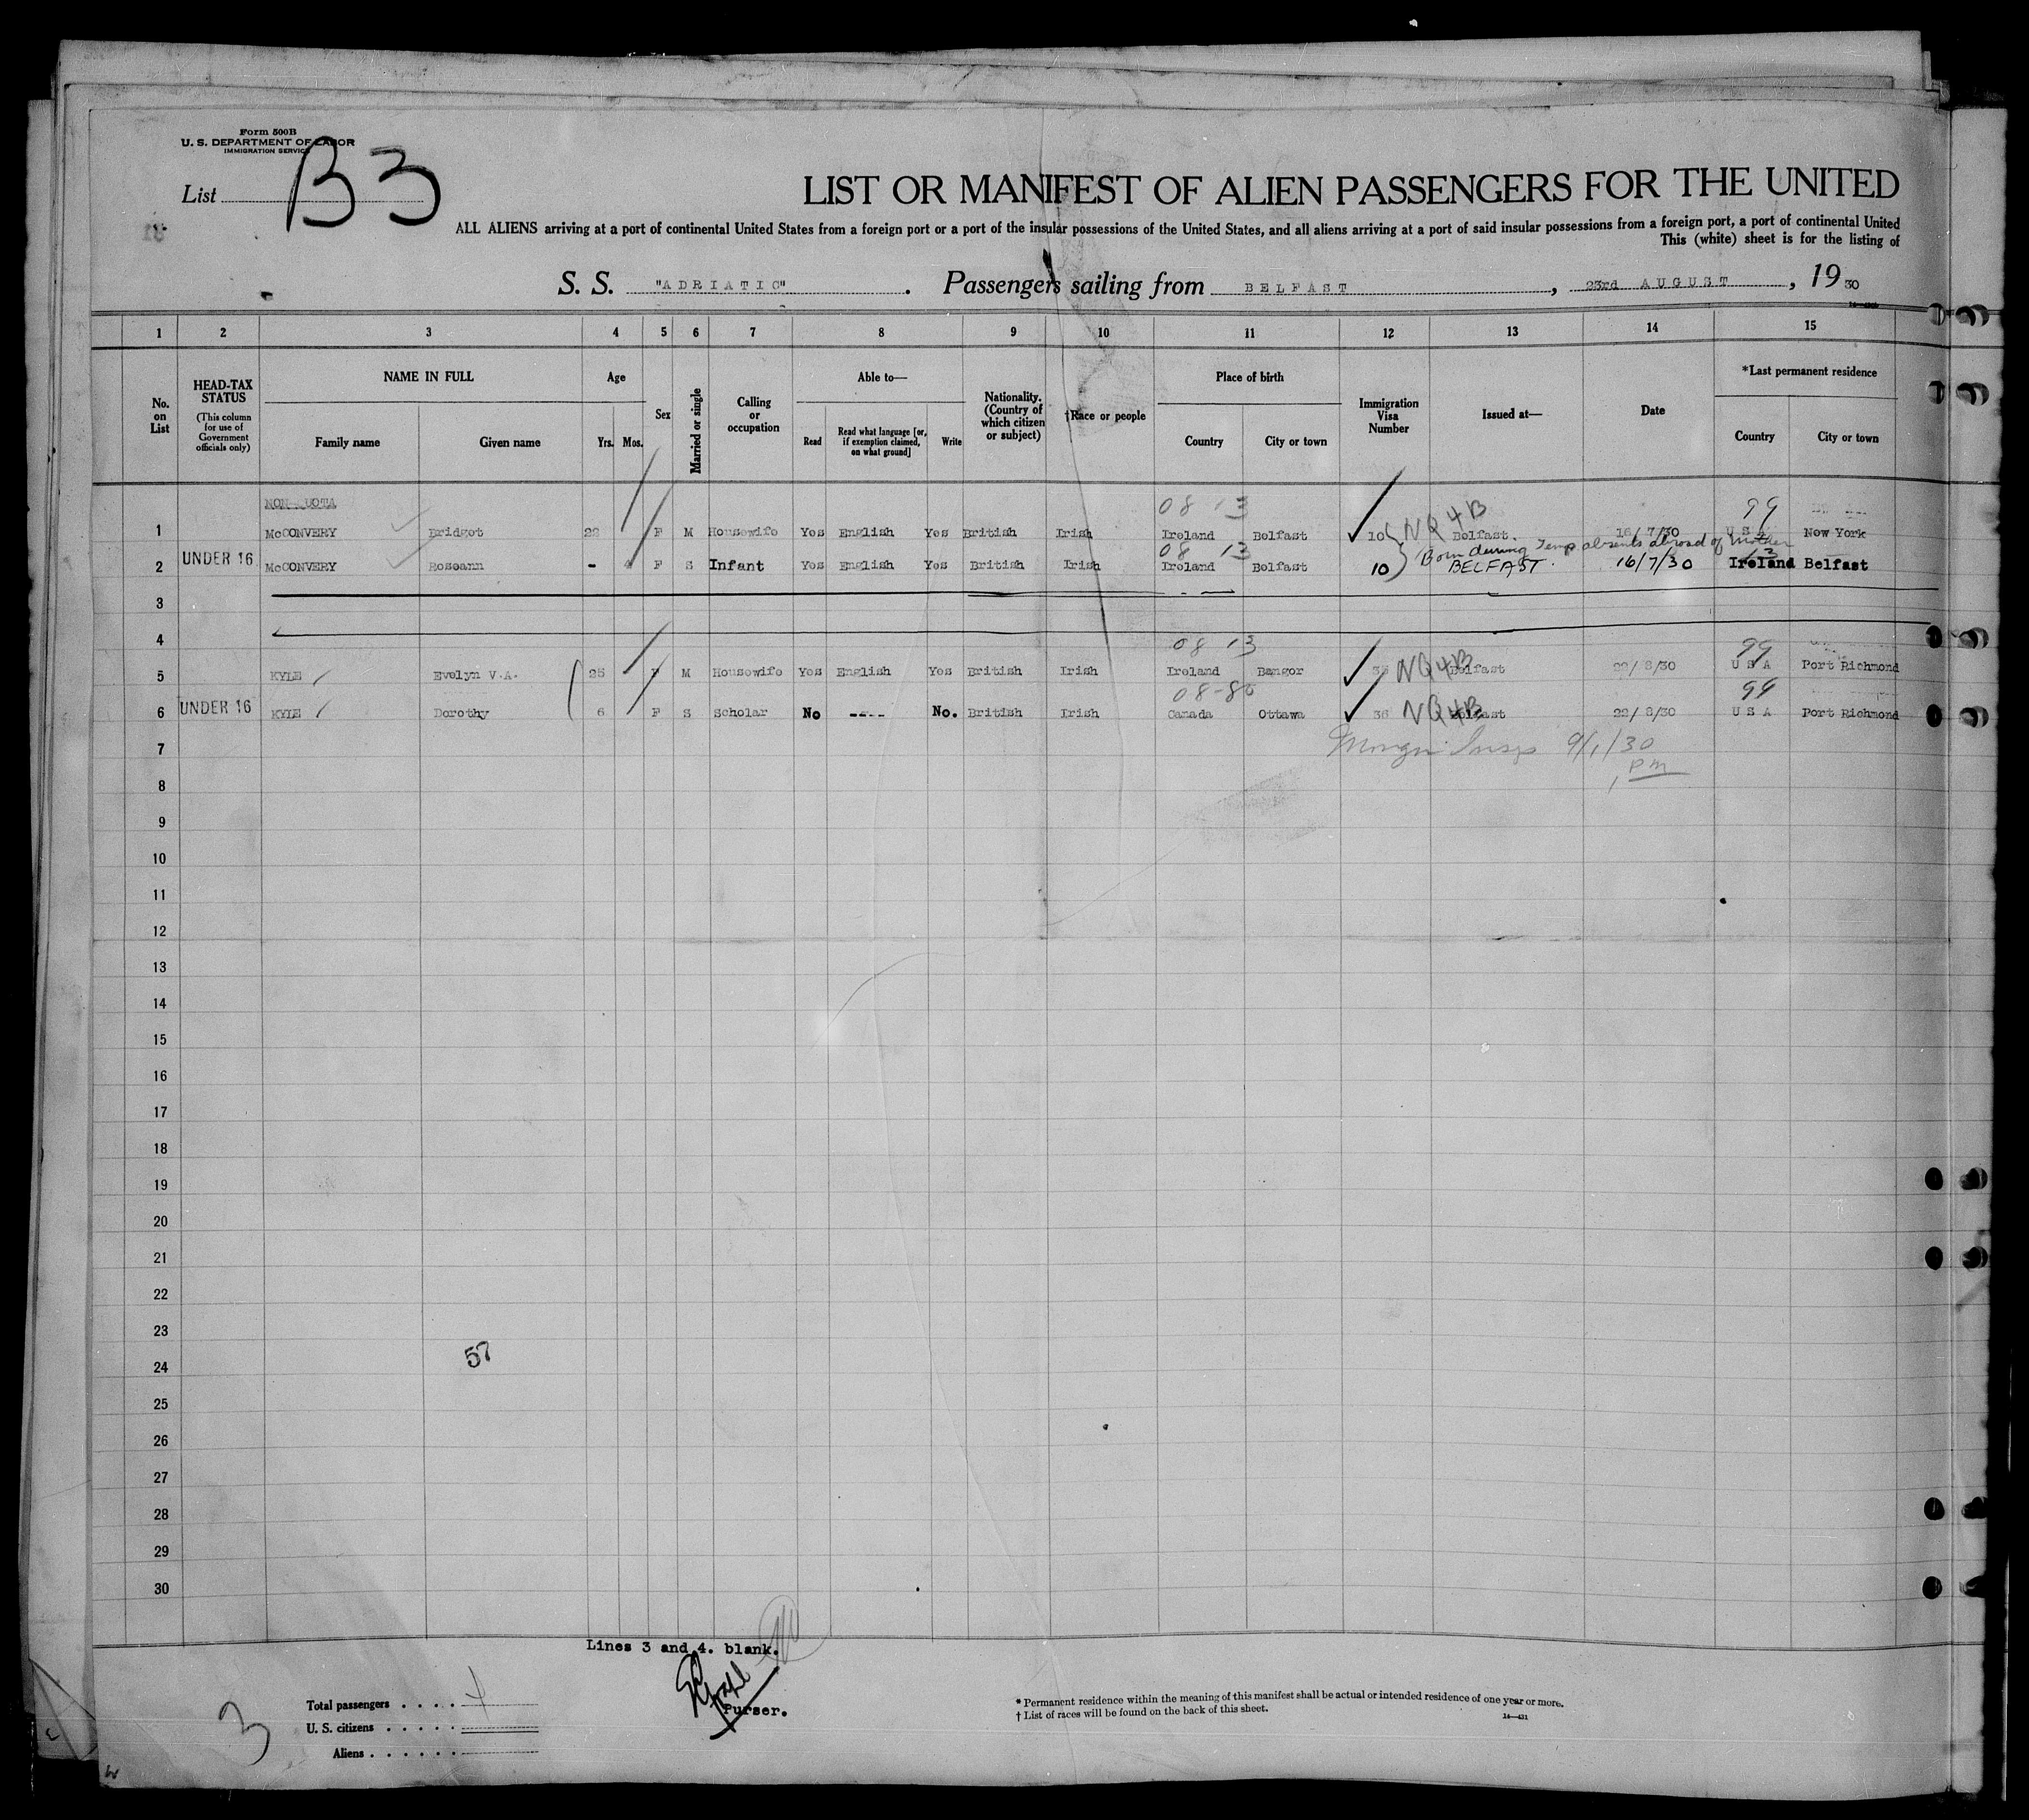 Form 500B
U. S. DEPARTMENT OF LABOR
IMMIGRATION SERVICE
List B3
LIST OR MANIFEST OF ALIEN PASSENGERS FOR THE UNITED
ALL ALIENS arriving at a port of continental United States from a foreign port or a port of the insular possessions of the United States, and all aliens arriving at a port of said insular possessions from a foreign port, a port of continental United
This (white) sheet is for the listing of
S. S. "ADRIATIC". Passengers sailing from BELFAST, 23rd AUGUST, 1930
1 2 3 4 5 6 7 8 9 10 11 12 13 14 15
No. on List
HEAD-TAX STATUS (This column for use of Government officials only)
NAME IN FULL
Family name Given name
Age
Yrs. Mos.
Sex
Married or single
Calling or occupation
Able to—
Read Read what language [or, if exemption claimed, on what ground] Write
Nationality. (Country of which citizen or subject)
†Race or people
Place of birth
Country City or town
Immigration Visa Number
Issued at—
Date
*Last permanent residence
Country City or town
NON QUOTA
08 13 99
1 McCONVERY Bridget 22 F M Housewife Yes English Yes British Irish Ireland Belfast 10 NQ4B Belfast. 16/7/30 U S A New York
08 13 Born during Temp absents abroad of Mother 13
2 UNDER 16 McCONVERY Roseann - 4 F S Infant Yes English Yes British Irish Ireland Belfast 10 BELFAST. 16/7/30 Ireland Belfast
3
4
08 13 99
5 KYLE Evelyn V.A. 25 F M Housewife Yes English Yes British Irish Ireland Bangor 35 NQ4B Belfast 22/8/30 U S A Port Richmond
08-80 99
6 UNDER 16 KYLE Dorothy 6 F S Scholar No ---- No. British Irish Canada Ottawa 36 NQ4B Belfast 22/8/30 U S A Port Richmond
7 9/1/30
pm
8
9
10
11
12
13
14
15
16
17
18
19
20
21
22
23
57
24
25
26
27
28
29
30
Lines 3 and 4. blank.
Purser.
3
Total passengers . . . . 4
U. S. citizens . . . . .
Aliens . . . . . .
* Permanent residence within the meaning of this manifest shall be actual or intended residence of one year or more.
† List of races will be found on the back of this sheet.